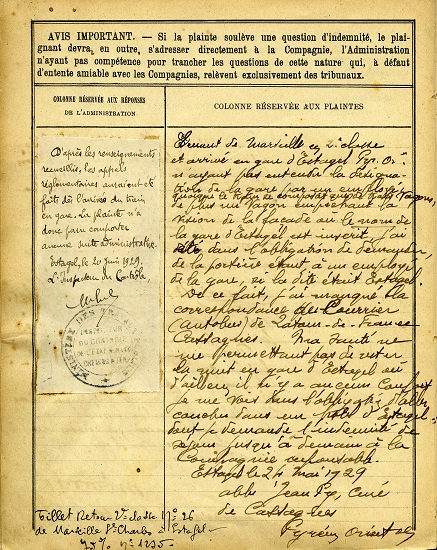 AVIS IMPORTANT. — Si la plainte soulève une question d'indemnité, le plai-
gnant devra, en outre, s'adresser directement à la Compagnie, l'Administration
n'ayant pas compétence pour trancher les questions de cette nature qui, à défaut
d'entente amiable avec les Compagnies, relèvent exclusivement des tribunaux.
COLONNE RÉSERVÉE AUX RÉPONSES
DE L'ADMINISTRATION
D'après les renseignements
recueillis, les appels
réglementaires auraient été
faits dès l'arrivée du train
en gare. La plainte n'a
donc pu comporter
aucune suite administrative.
Estagel, le 20 juin 1929.
L'Inspecteur du Contrôle,
COLONNE RÉSERVÉE AUX PLAINTES
Venant de Marseille en 2e classe
et arrivé en gare d'Estagel Pyr. Or.
n'ayant pas entendu la désigna-
tion de la gare par un employé
de plus un wagon empêchant la
vision de la façade où le nom de
la gare d'Estagel est inscrit j'ai
été dans l'obligation de demander
de la portière étant à un employé
de la gare, si la dite était Estagel.
De ce fait, j'ai manqué la
correspondance du Courrier
(Autobus) de Latour-de-France
Cassagnes. Ma santé ne
me permettant pas de rester
la nuit en gare d'Estagel où
d'ailleurs il n'y a aucun confort
je me vois dans l'obligation d'aller
coucher dans un hôtel d'Estagel
dont je demande l'indemnité de
séjour jusqu'à demain à la
Compagnie responsable.
Estagel le 24 mai 1929
abbé Jean Py, curé
de Cassagnes
Pyrén Orientales
Billet Retour 2e classe No 26
de Marseille St Charles à Estagel